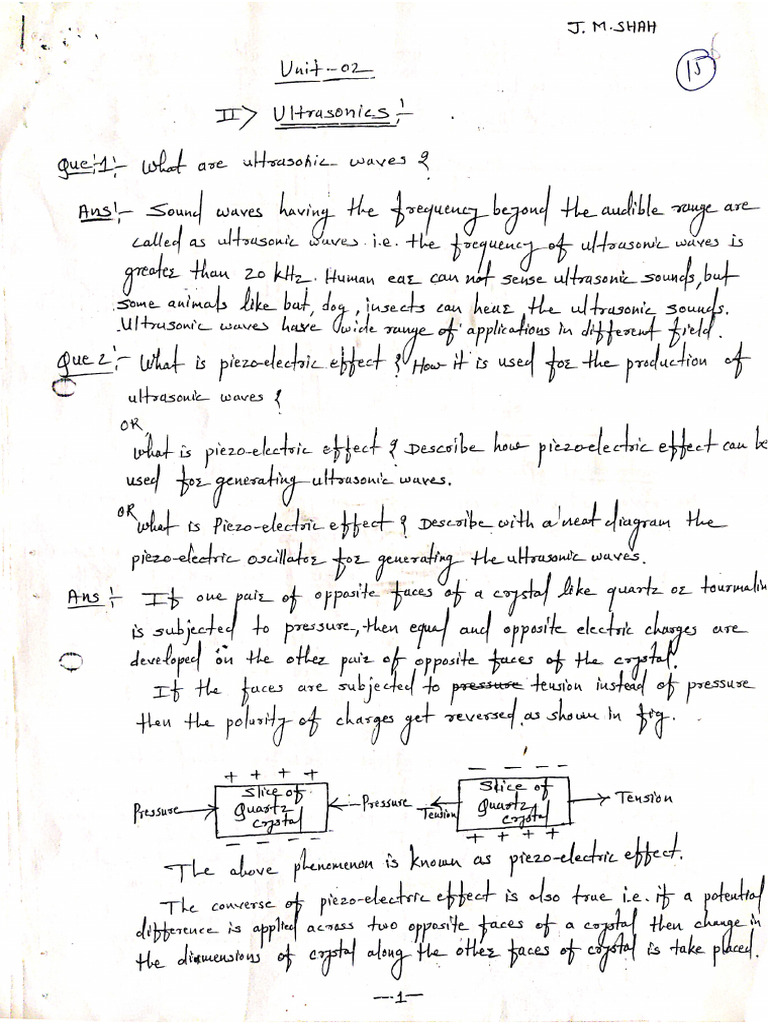 J. M. SHAH
15
Unit-02
II> Ultrasonics:-
Que:1:- What are ultrasonic waves ?
Ans:- Sound waves having the frequency beyond the audible range are
called as ultrasonic waves. i.e. the frequency of ultrasonic waves is
greater than 20 kHz. Human ear can not sense ultrasonic sounds, but
some animals like bat, dog, insects can hear the ultrasonic sounds.
Ultrasonic waves have wide range of applications in different field.
Que 2:- What is piezo-electric effect ? How it is used for the production of
ultrasonic waves ?
OR
What is piezo-electric effect ? Describe how piezo-electric effect can be
used for generating ultrasonic waves.
OR
What is Piezo-electric effect ? Describe with a neat diagram the
piezo-electric oscillator for generating the ultrasonic waves.
Ans:- If one pair of opposite faces of a crystal like quartz or tourmalin
is subjected to pressure, then equal and opposite electric charges are
developed on the other pair of opposite faces of the crystal.
If the faces are subjected to pressure tension instead of pressure
then the polurity of charges get reversed. as shown in fig.
+ + + +
- - - -
Pressure Slice of Quartz crystal Pressure
Tension Slice of Quartz crystal Tension
- - - - -
+ + + +
The above phenomenon is known as piezo-electric effect.
The converse of piezo-electric effect is also true i.e. if a potential
difference is applied across two opposite faces of a crystal then change in
the dimmensions of crystal along the other faces of crystal is take placed.
-1-